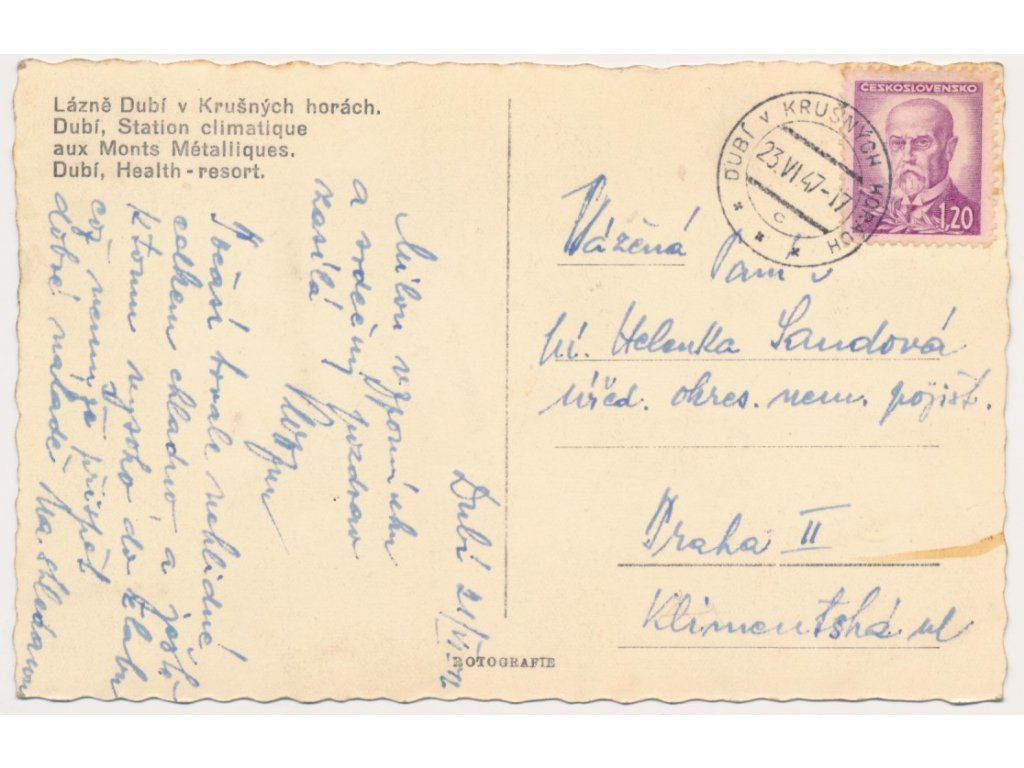 Lázně Dubí v Krušných horách.
Dubí, Station climatique
aux Monts Métalliques.
Dubí, Health-resort.
ČESKOSLOVENSKO
1,20
DUBÍ V KRUŠNÝCH HORÁCH
23.VI.47-17
C
Vážená
Paní
pí. Helenka Sandová
úřed. okres. nem. pojišť.
Praha II
Klimentská ul
Dubí 21/VI
Milou vzpomínku
a srdečný pozdrav
zasílá
Počasí trvale neklidné
celkem chladno, a ještě
k tomu vysoko do
což nemůže přispět
dobré náladě. Na
ROTOGRAFIE